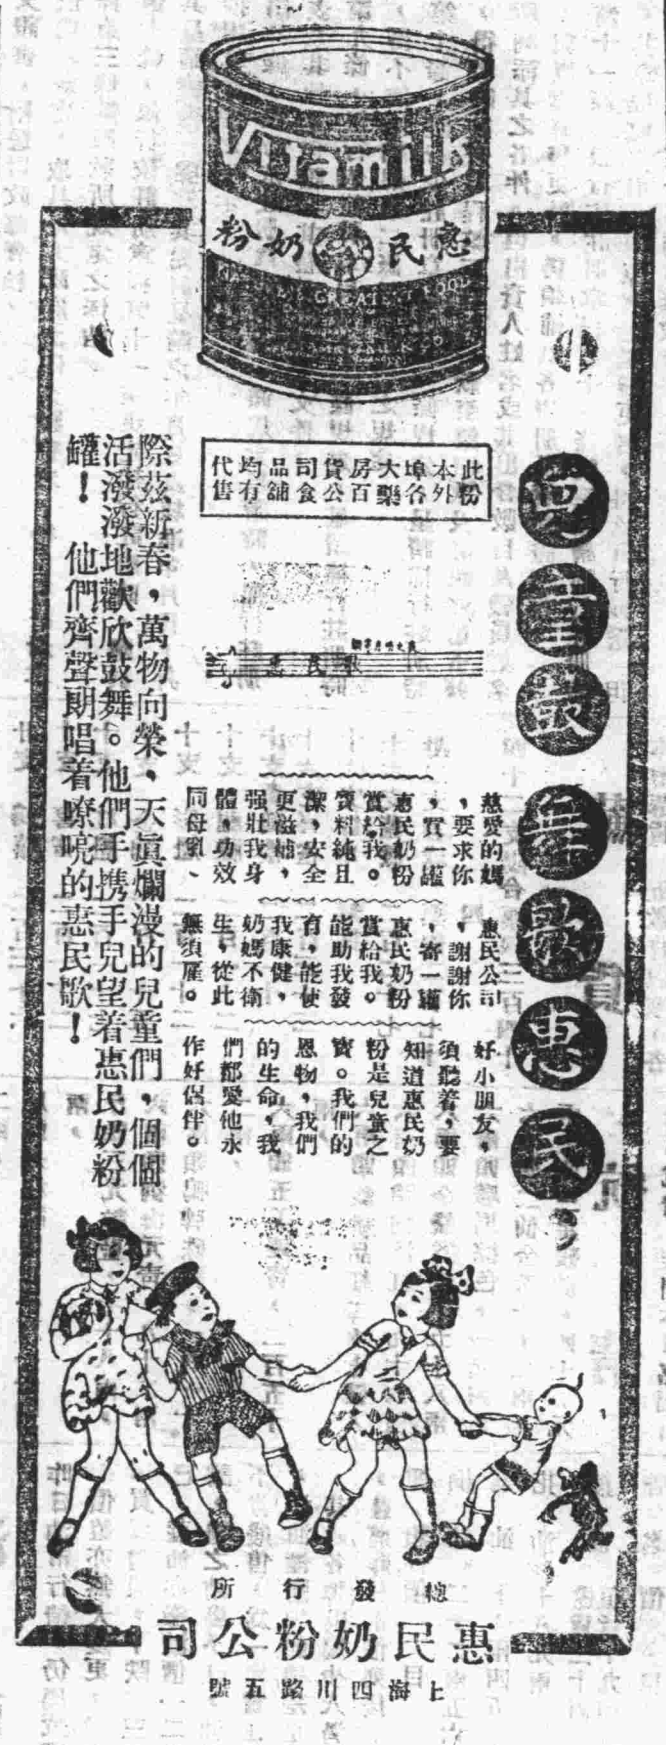 Vitamilk
惠民奶粉
THE GREATEST FOOD
兒童最喜歡惠民
此粉
本外
埠各
大藥
房百
貨公
司食
品舖
均有
代售
惠民歌
慈愛的媽
，要求你
，買一罐
惠民奶粉
賞給我。
質料純且
潔，安全
更滋補，
强壯我身
體，功效
同母乳、
惠民公司
，謝謝你
，寄一罐
惠民奶粉
賞給我。
能助我發
育，能使
我康健，
奶媽不衛
生，從此
無須雇。
好小朋友，
須聽着，要
知道惠民奶
粉是兒童之
寶。我們的
恩物，我們
的生命，我
們都愛他永
作好侶伴。
際茲新春，萬物向榮，天眞爛漫的兒童們，個個
活潑潑地歡欣鼓舞。他們手携手兒望着惠民奶粉
罐！他們齊聲朗唱着嘹喨的惠民歌！
總發行所
惠民奶粉公司
上海四川路五號